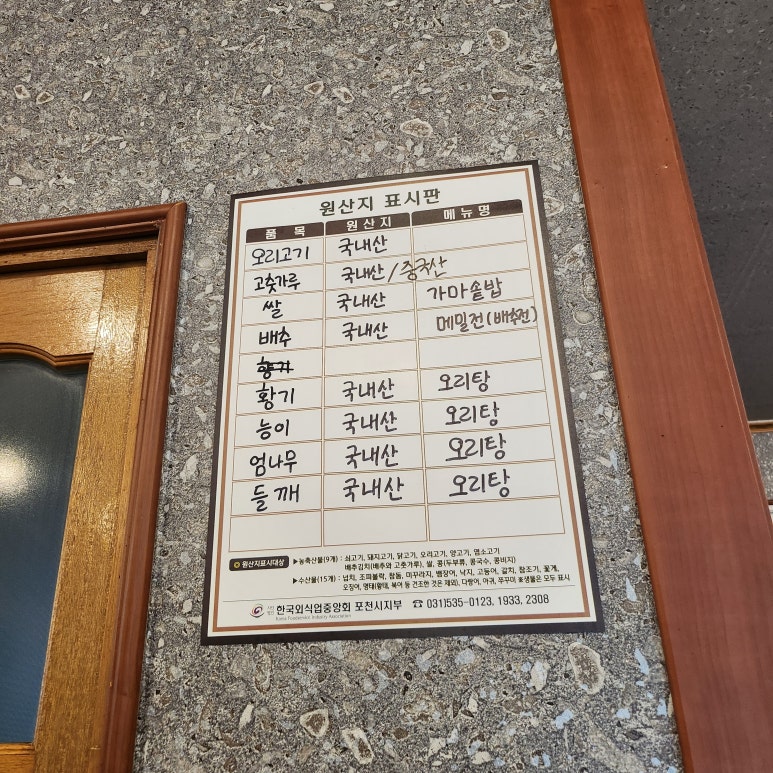 원산지 표시판
품 목 원 산 지 메 뉴 명
오리고기 국내산
고춧가루 국내산/중국산
쌀 국내산 가마솥밥
배추 국내산 메밀전(배추전)
황기 국내산 오리탕
능이 국내산 오리탕
엄나무 국내산 오리탕
들깨 국내산 오리탕
원산지표시대상 ▶농축산물(9개) : 쇠고기, 돼지고기, 닭고기, 오리고기, 양고기, 염소고기
배추김치(배추와 고춧가루), 쌀, 콩(두부류, 콩국수, 콩비지)
▶수산물(15개) : 넙치, 조피볼락, 참돔, 미꾸라지, 뱀장어, 낙지, 고등어, 갈치, 참조기, 꽃게,
오징어, 명태(황태, 북어 등 건조한 것은 제외), 다랑어, 아귀, 쭈꾸미 호생물은 모두 표시
사단법인 한국외식업중앙회 포천시지부 ☎ 031)535-0123, 1933, 2308
Korea Foodservice Industry Association